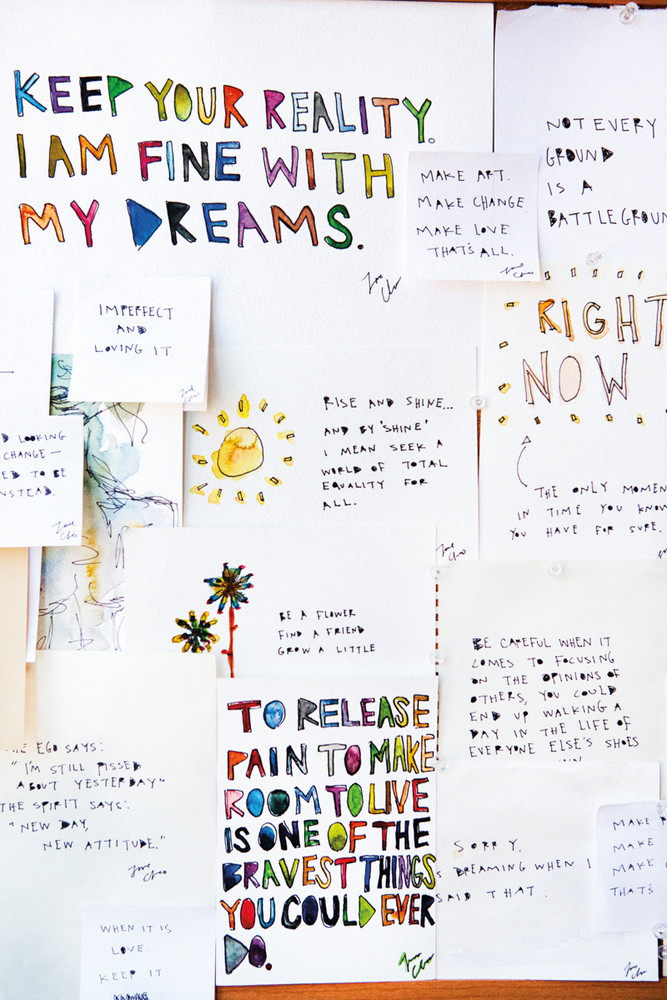 KEEP YOUR REALITY.
I AM FINE WITH
MY DREAMS.
Love
Cleo
MAKE ART.
MAKE CHANGE.
MAKE LOVE
THAT'S ALL.
NOT EVERY
GROUND
IS A
BATTLEGROUN
IMPERFECT
AND
LOVING IT.
RIGHT
NOW
THE ONLY MOMEN
IN TIME YOU KNOW
YOU HAVE FOR SURE.
D LOOKING
CHANGE—
ED TO BE
NSTEAD.
RISE AND SHINE...
AND BY 'SHINE'
I MEAN SEEK A
WORLD OF TOTAL
EQUALITY FOR
ALL.
BE A FLOWER
FIND A FRIEND
GROW A LITTLE
BE CAREFUL WHEN IT
COMES TO FOCUSING
ON THE OPINIONS OF
OTHERS, YOU COULD
END UP WALKING A
DAY IN THE LIFE OF
EVERYONE ELSE'S SHOES
THE EGO SAYS:
"I'M STILL PISSED
ABOUT YESTERDAY"
THE SPIRIT SAYS:
"NEW DAY,
NEW ATTITUDE."
TO RELEASE
PAIN TO MAKE
ROOM TO LIVE
IS ONE OF THE
BRAVEST THINGS
YOU COULD EVER
DO.
SORRY.
DREAMING WHEN I
SAID THAT.
MAKE
MAKE
MAKE
THAT'S
WHEN IT IS
LOVE.
KEEP IT